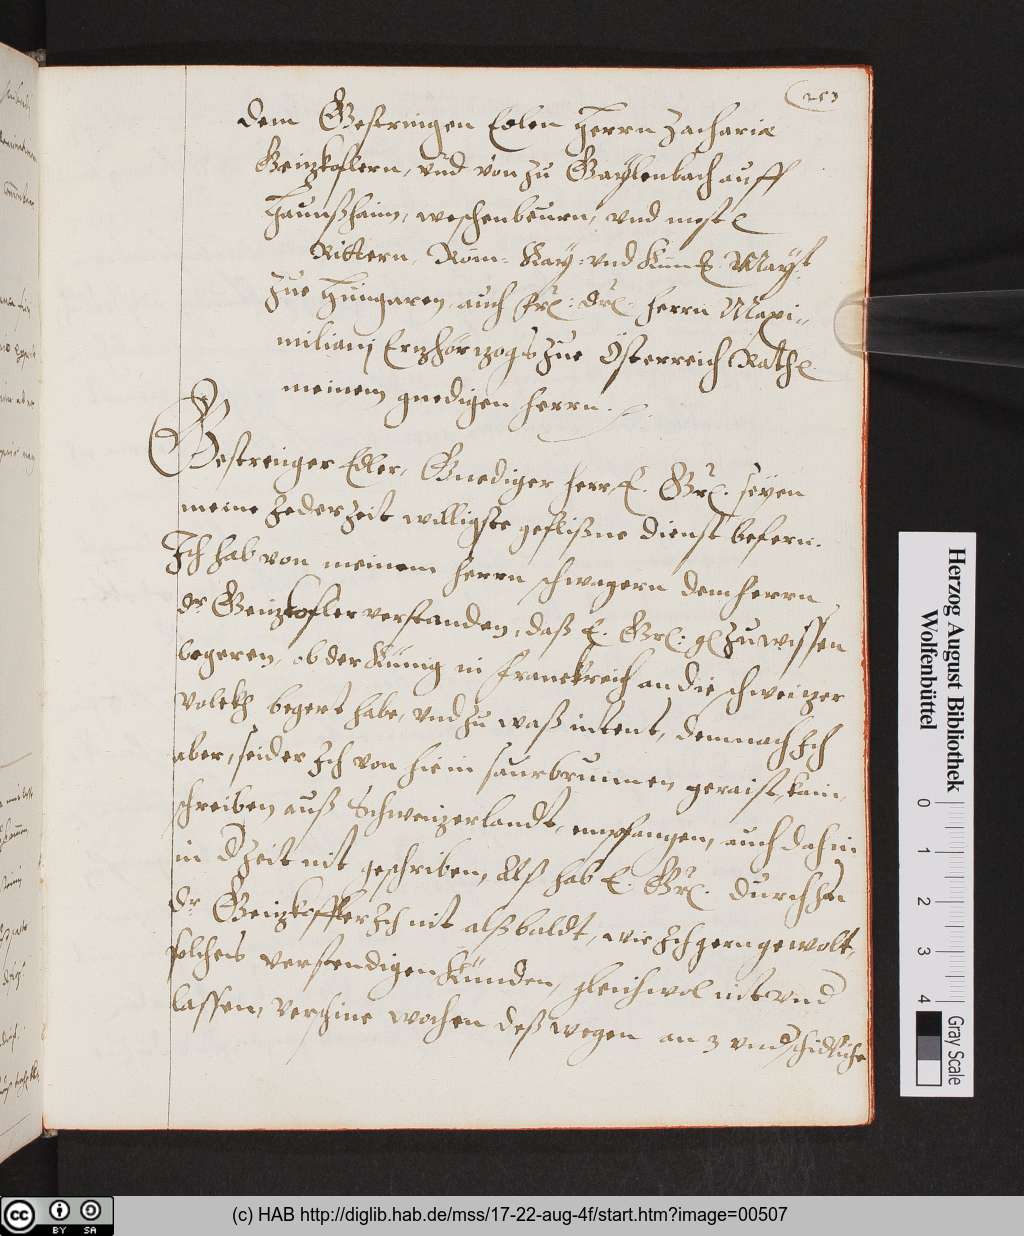 253
dem Gestrengen Edlen Herrn Zachariæ
Geizkoflern, vnd von zu Gaylenbach auff
Haunßhaim, weschenbeurn, vnd
Rittern, Röm: Kay: vnd Küng: Mayt.
zue Hungaren, auch frl: Drl: Herrn Maxi-
miliani Ertzhörtzogs zue Österreich Rath
meinem gnedigen herrn.
Gestrenger Edler, Gnediger herr, E. Grl. seyen
meine Jederzeit willigste geflißne dienst befern.
Ich hab von meinem herrn schwagern dem herrn
dr Geizkofler verstanden, daß E. Grl: gl zu wissen
begeren, ob der Künig in franckreich an die schweitzer
volckh begert habe, vnd zu waß intent, demnach Ich
aber, seider Ich von hie in saurbrunnen geraist, kain
schreiben auß Schweitzerlandt, empfangen, auch dahin
in d Zeit nit geschriben, Alß hab E. Grl. durch hn
Dr. Geizkoffler Ich nit alßbaldt, wie Ich gern gewolt,
solches verstendigen Künden, gleichwol nit vnd
lassen, vergine wochen deßwegen an 3 vndschidliche
Herzog August Bibliothek
Wolfenbüttel
0 1 2 3 4
Gray Scale
cc BY SA
(c) HAB http://diglib.hab.de/mss/17-22-aug-4f/start.htm?image=00507